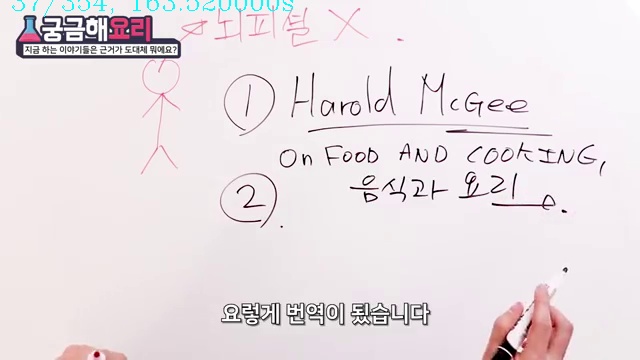 37/354, 163.520000s
궁금해요리
지금 하는 이야기들은 근거가 도대체 뭐에요?
뇌피셜 X
① Harold McGee
On FOOD AND COOKING,
음식과 요리
②
요렇게 번역이 됬습니다